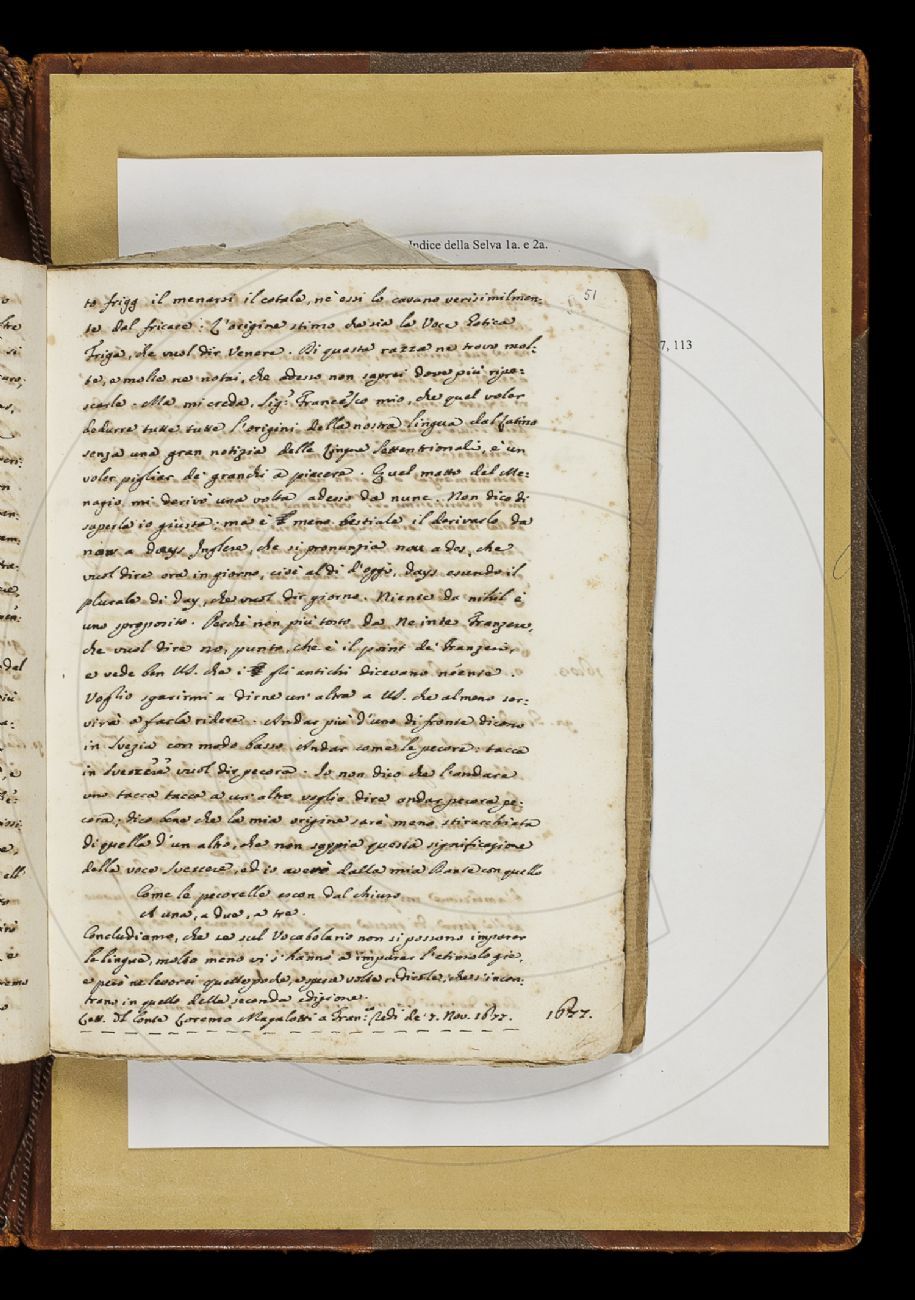 Indice della Selva 1a. e 2a.
7, 113
51
to frigg il menarsi il cotale, nè essi lo cavano verisimilmen:
te dal fricare: L'origine stimo che sia la Voce Gotica
Friga, che vuol dir Venere. Di questa razza ne trovo mol:
te, e molte ne notai, che adesso non saprei dove più ripe:
scarle. Ma mi creda, Sig.r Francesco mio, che quel voler
dedurre tutte tutte l'origini della nostra lingua dal Latino
senza una gran notizia delle Lingue Settentrionali, è un
voler pigliar de' granchi a piacere. Quel matto del Me:
nagio mi derivò una volta adesso da nunc. Non dico di
saperla io giusta: ma è meno bestiale il derivarlo da
now a days Inglese, che si pronunzia nau a des, che
vuol dire ora in giorno, cioè al dì d'oggi, days essendo il
plurale di day, che vuol dir giorno. Niente da nihil è
uno sproposito. Perchè non più tosto da Ne inte Franzese,
che vuol dire no, punto, che è il point de' Franzesi,
e vede ben VS. che i gli antichi dicevano neente.
Voglio sgarirmi a dirne un' altra a VS. che almeno ser:
virà a farla ridere. Andar più d'uno di fronte dicono
in Svezia con modo basso Andar come le pecore: tacca
in Svezzese vuol dir pecora: Io non dico che l'andare
uno tacca tacca a un' altro voglia dire andar pecora pe:
cora; dico bene che la mia origine sarà meno stiracchiata
di quella d'un altro, che non sappia questa significazione
della voce Svezzese, ed io averò dalla mia Dante con quello
Come le pecorelle escon dal chiuso
A una, a due, a tre.
Concludiamo, che se sul Vocabolario non si possono imparar
le lingue, molto meno vi s'hanno a imparar l'etimologie,
e però ne leverei quelle poche, e spesse volte ridicole, che s'incon:
trano in quello della seconda edizione.
Lett. Il Conte Lorenzo Magalotti a Fran.co Redi de' 7. Nov. 1677.
1677.